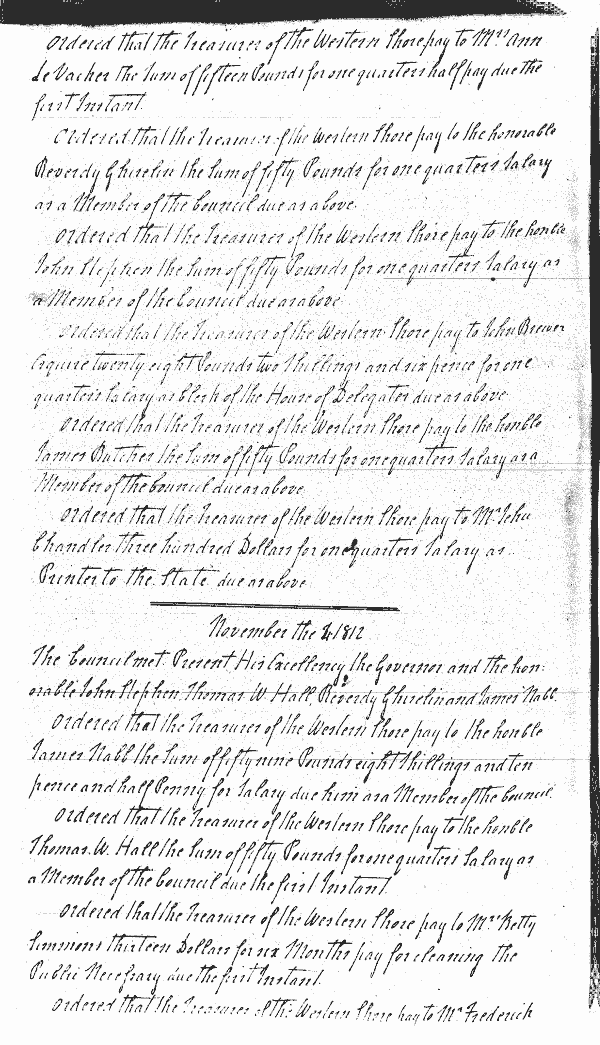 Ordered that the Treasurer of the Western Shore pay to Mrs Ann
Le Vacher the Sum of fifteen Pounds for one quarters half pay due the
first Instant.
Ordered that the Treasurer of the Western Shore pay to the honorable
Reverdy Ghiselin the Sum of fifty Pounds for one quarters Salary
as a Member of the Council due as above.
Ordered that the Treasurer of the Western Shore pay to the honble
John Stephen the Sum of fifty Pounds for one quarters Salary as
a Member of the Council due as above
Ordered that the Treasurer of the Western Shore pay to John Brewer
Esquire twenty eight Pounds two Shillings and six pence for one
quarters Salary as Clerk of the House of Delegates due as above
Ordered that the Treasurer of the Western Shore pay to the honble
James Butcher the Sum of fifty Pounds for one quarters Salary as a
Member of the Council due as above
Ordered that the Treasurer of the Western Shore pay to Mr John
Chandler three hundred Dollars for one quarters Salary as
Printer to the State due as above
November the 4 1812
The Council met. Present, His Excellency the Governor and the hon:
orable John Stephen, Thomas W Hall, Reverdy Ghiselin and James Nabb.
Ordered that the Treasurer of the Western Shore pay to the honble
James Nabb the Sum of fifty nine Pounds eight Shillings and ten
pence and half Penny for Salary due him as a Member of the Council.
Ordered that the Treasurer of the Western Shore pay to the honble
Thomas. W. Hall the Sum of fifty Pounds for one quarters Salary as
a Member of the Council due the first Instant.
Ordered that the Treasurer of the Western Shore pay to Mrs Ketty
Simmons thirteen Dollars for six Months pay for cleaning the
Public Necessary due the first Instant.
Ordered that the Treasurer of the Western Shore pay to Mr Frederick